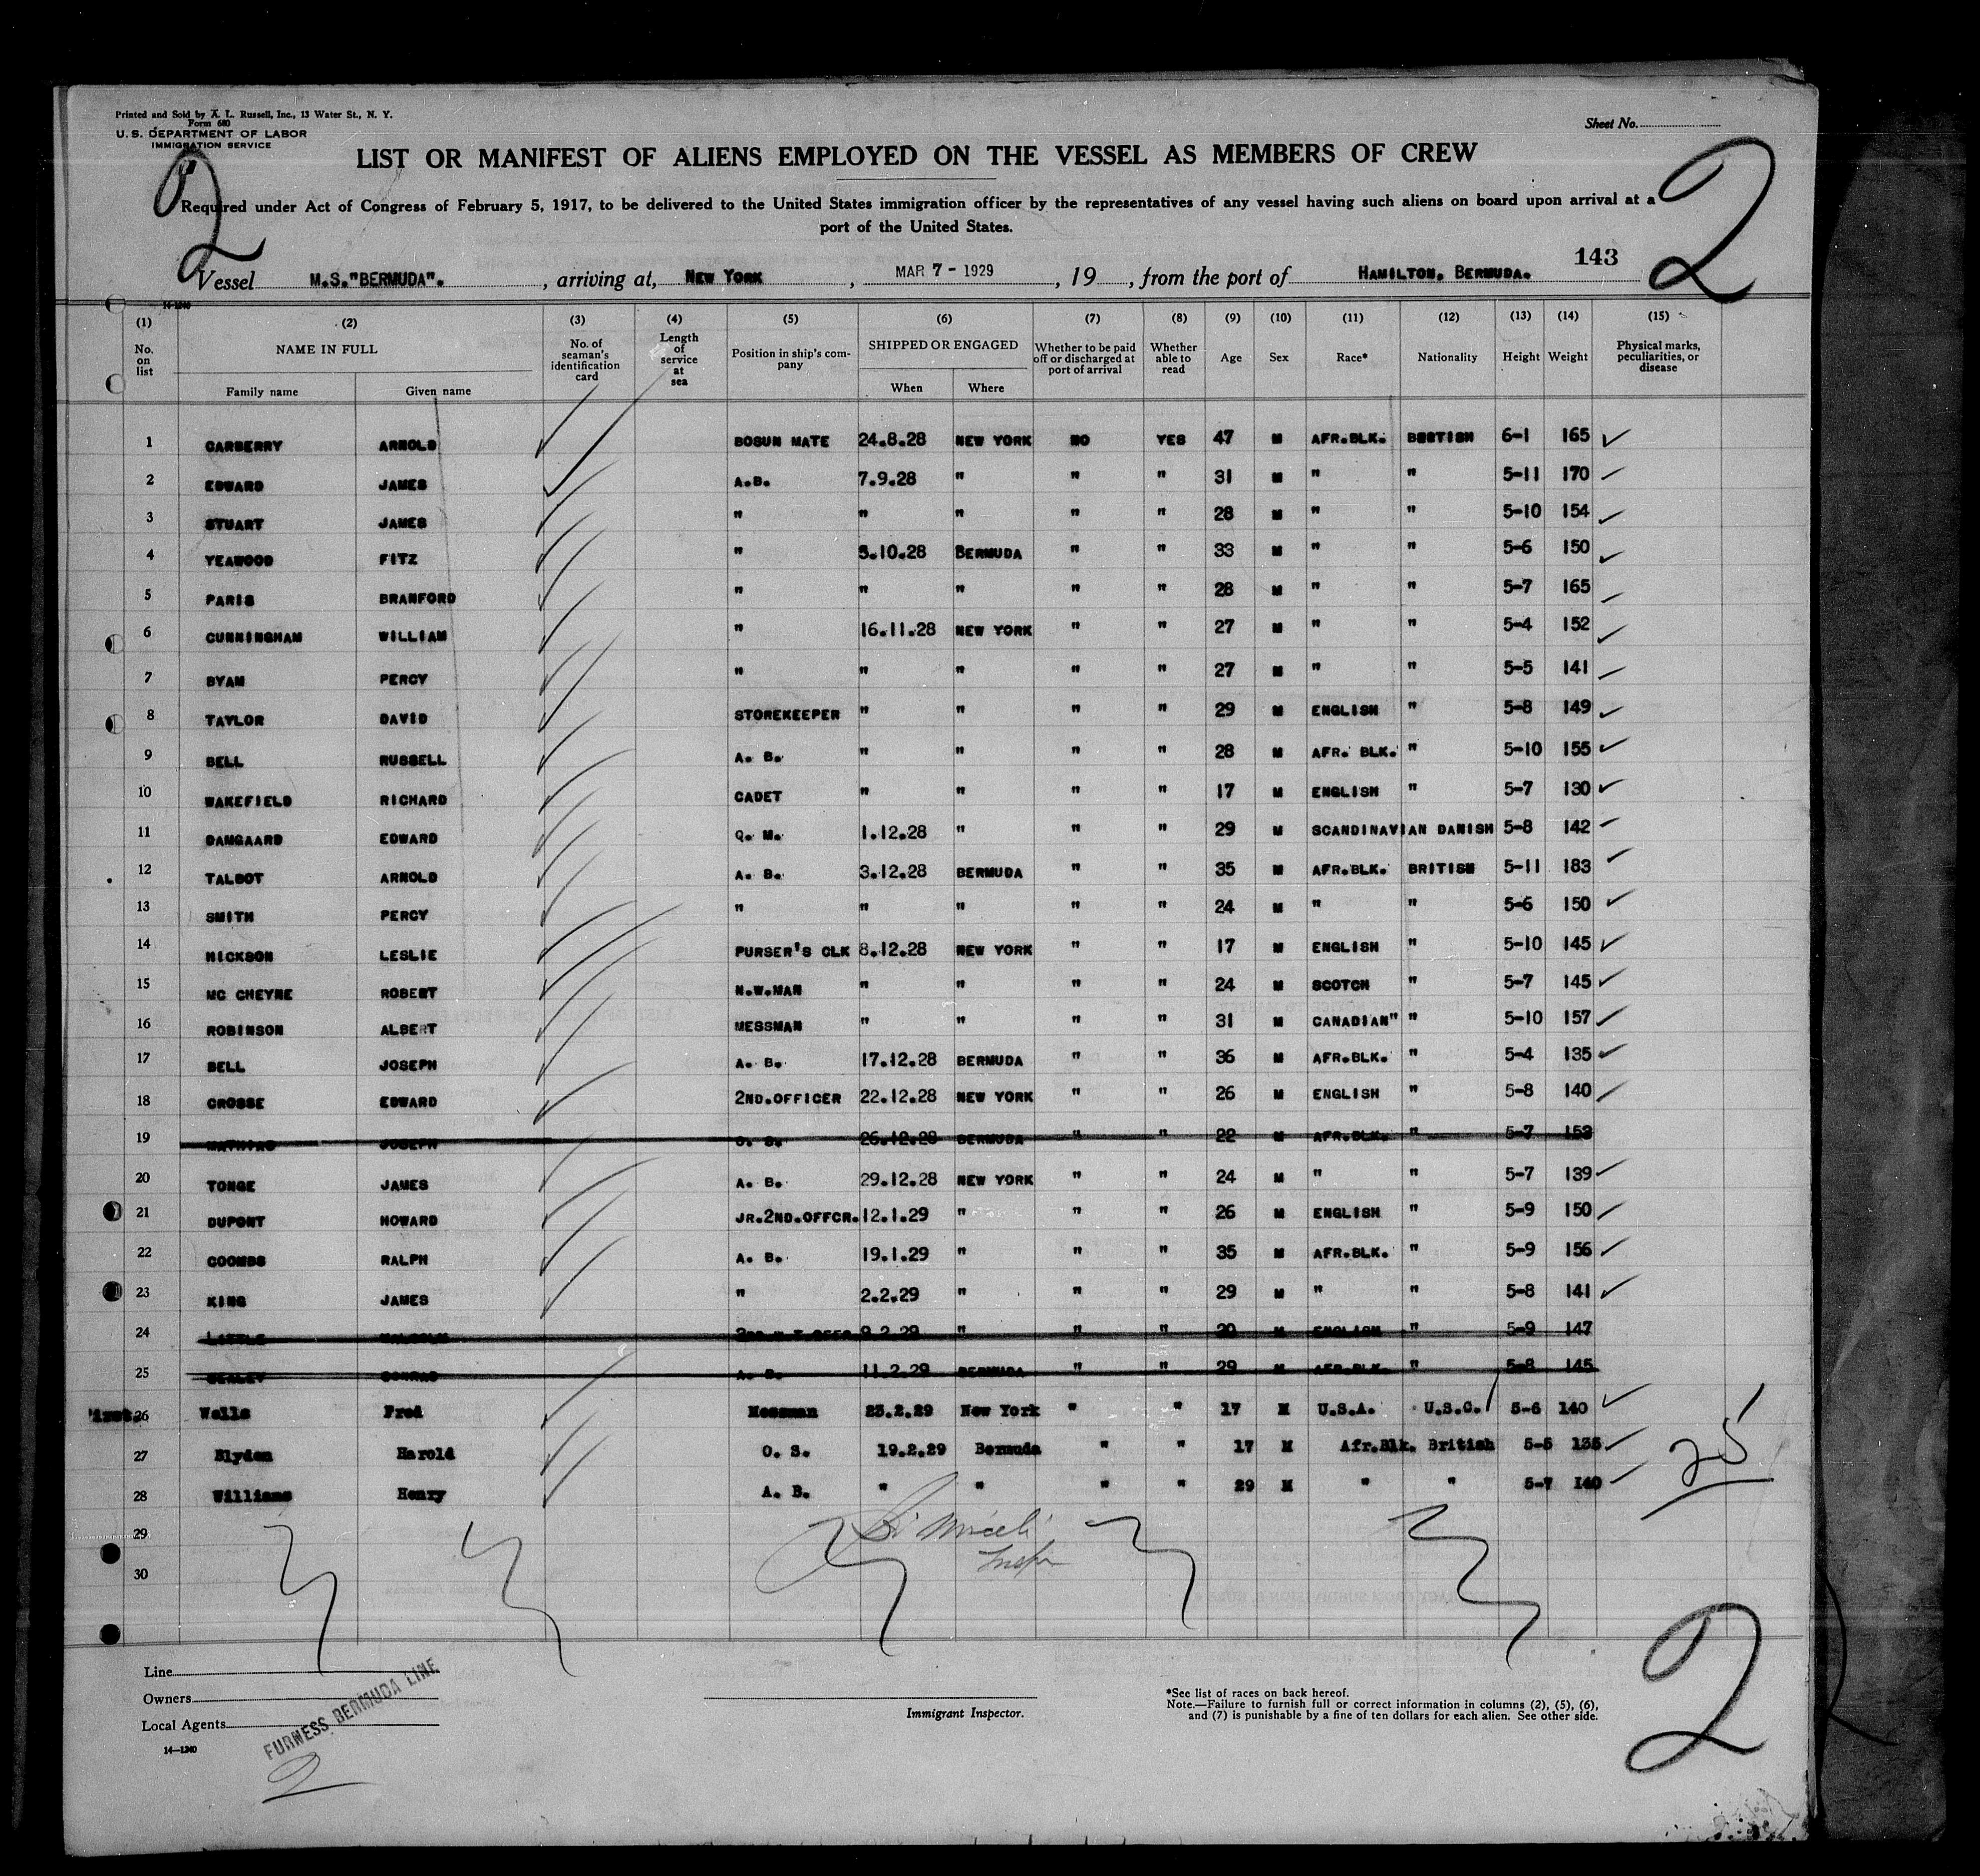 Printed and Sold by A. L. Russell, Inc., 13 Water St., N. Y.
Form 680
U. S. DEPARTMENT OF LABOR
IMMIGRATION SERVICE
Sheet No.
LIST OR MANIFEST OF ALIENS EMPLOYED ON THE VESSEL AS MEMBERS OF CREW
Required under Act of Congress of February 5, 1917, to be delivered to the United States immigration officer by the representatives of any vessel having such aliens on board upon arrival at a
port of the United States.
2 2
143
Vessel M.S."BERMUDA". , arriving at, NEW YORK , MAR 7 - 1929 , 19 , from the port of HAMILTON, BERMUDA.
14-1240
(1) (2) (3) (4) (5) (6) (7) (8) (9) (10) (11) (12) (13) (14) (15)
No. on list NAME IN FULL No. of seaman's identification card Length of service at sea Position in ship's company SHIPPED OR ENGAGED Whether to be paid off or discharged at port of arrival Whether able to read Age Sex Race* Nationality Height Weight Physical marks, peculiarities, or disease
Family name Given name When Where
1 CARBERRY ARNOLD BOSUN MATE 24.8.28 NEW YORK NO YES 47 M AFR.BLK. BRITISH 6-1 165
2 EDWARD JAMES A.B. 7.9.28 " " " 31 M " " 5-11 170
3 STUART JAMES " " " " " 28 M " " 5-10 154
4 YEAWOOD FITZ " 5.10.28 BERMUDA " " 33 M " " 5-6 150
5 PARIS BRANFORD " " " " " 28 M " " 5-7 165
6 CUNNINGHAM WILLIAM " 16.11.28 NEW YORK " " 27 M " " 5-4 152
7 BYAM PERCY " " " " " 27 M " " 5-5 141
8 TAYLOR DAVID STOREKEEPER " " " " 29 M ENGLISH " 5-8 149
9 BELL RUSSELL A. B. " " " " 28 M AFR. BLK. " 5-10 155
10 WAKEFIELD RICHARD CADET " " " " 17 M ENGLISH " 5-7 130
11 DAMGAARD EDWARD Q. M. 1.12.28 " " " 29 M SCANDINAVIAN DANISH 5-8 142
12 TALBOT ARNOLD A. B. 3.12.28 BERMUDA " " 35 M AFR.BLK. BRITISH 5-11 183
13 SMITH PERCY " " " " " 24 M " " 5-6 150
14 HICKSON LESLIE PURSER'S CLK 8.12.28 NEW YORK " " 17 M ENGLISH " 5-10 145
15 MC CHEYNE ROBERT N.W.MAN " " " " 24 M SCOTCH " 5-7 145
16 ROBINSON ALBERT MESSMAN " " " " 31 M CANADIAN" " 5-10 157
17 BELL JOSEPH A. B. 17.12.28 BERMUDA " " 36 M AFR.BLK. " 5-4 135
18 CROSSE EDWARD 2ND.OFFICER 22.12.28 NEW YORK " " 26 M ENGLISH " 5-8 140
19 MATHIAS JOSEPH O. S. 26.12.28 BERMUDA " " 22 M AFR.BLK. " 5-7 153
20 TONGE JAMES A. B. 29.12.28 NEW YORK " " 24 M " " 5-7 139
21 DUPONT HOWARD JR.2ND.OFFCR. 12.1.29 " " " 26 M ENGLISH " 5-9 150
22 COOMBS RALPH A. B. 19.1.29 " " " 35 M AFR.BLK. " 5-9 156
23 KING JAMES " 2.2.29 " " " 29 M " " 5-8 141
24 LITTLE MALCOLM 9.2.29 " " " 20 M ENGLISH " 5-9 147
25 SEALEY CONRAD A. B. 11.2.29 BERMUDA " " 29 M AFR.BLK. " 5-8 145
26 Wells Fred Messman 23.2.29 New York " " 17 M U.S.A. U.S.C. 5-6 140
27 Blyden Harold O. S. 19.2.29 Bermuda " " 17 M Afr.Blk. British 5-5 135
28 Williams Henry A. B. " " " " 29 M " " 5-7 140
25
29
30
Line
Owners
Local Agents
FURNESS BERMUDA LINE
14—1240
2
Immigrant Inspector.
*See list of races on back hereof.
Note.—Failure to furnish full or correct information in columns (2), (5), (6),
and (7) is punishable by a fine of ten dollars for each alien. See other side.
2